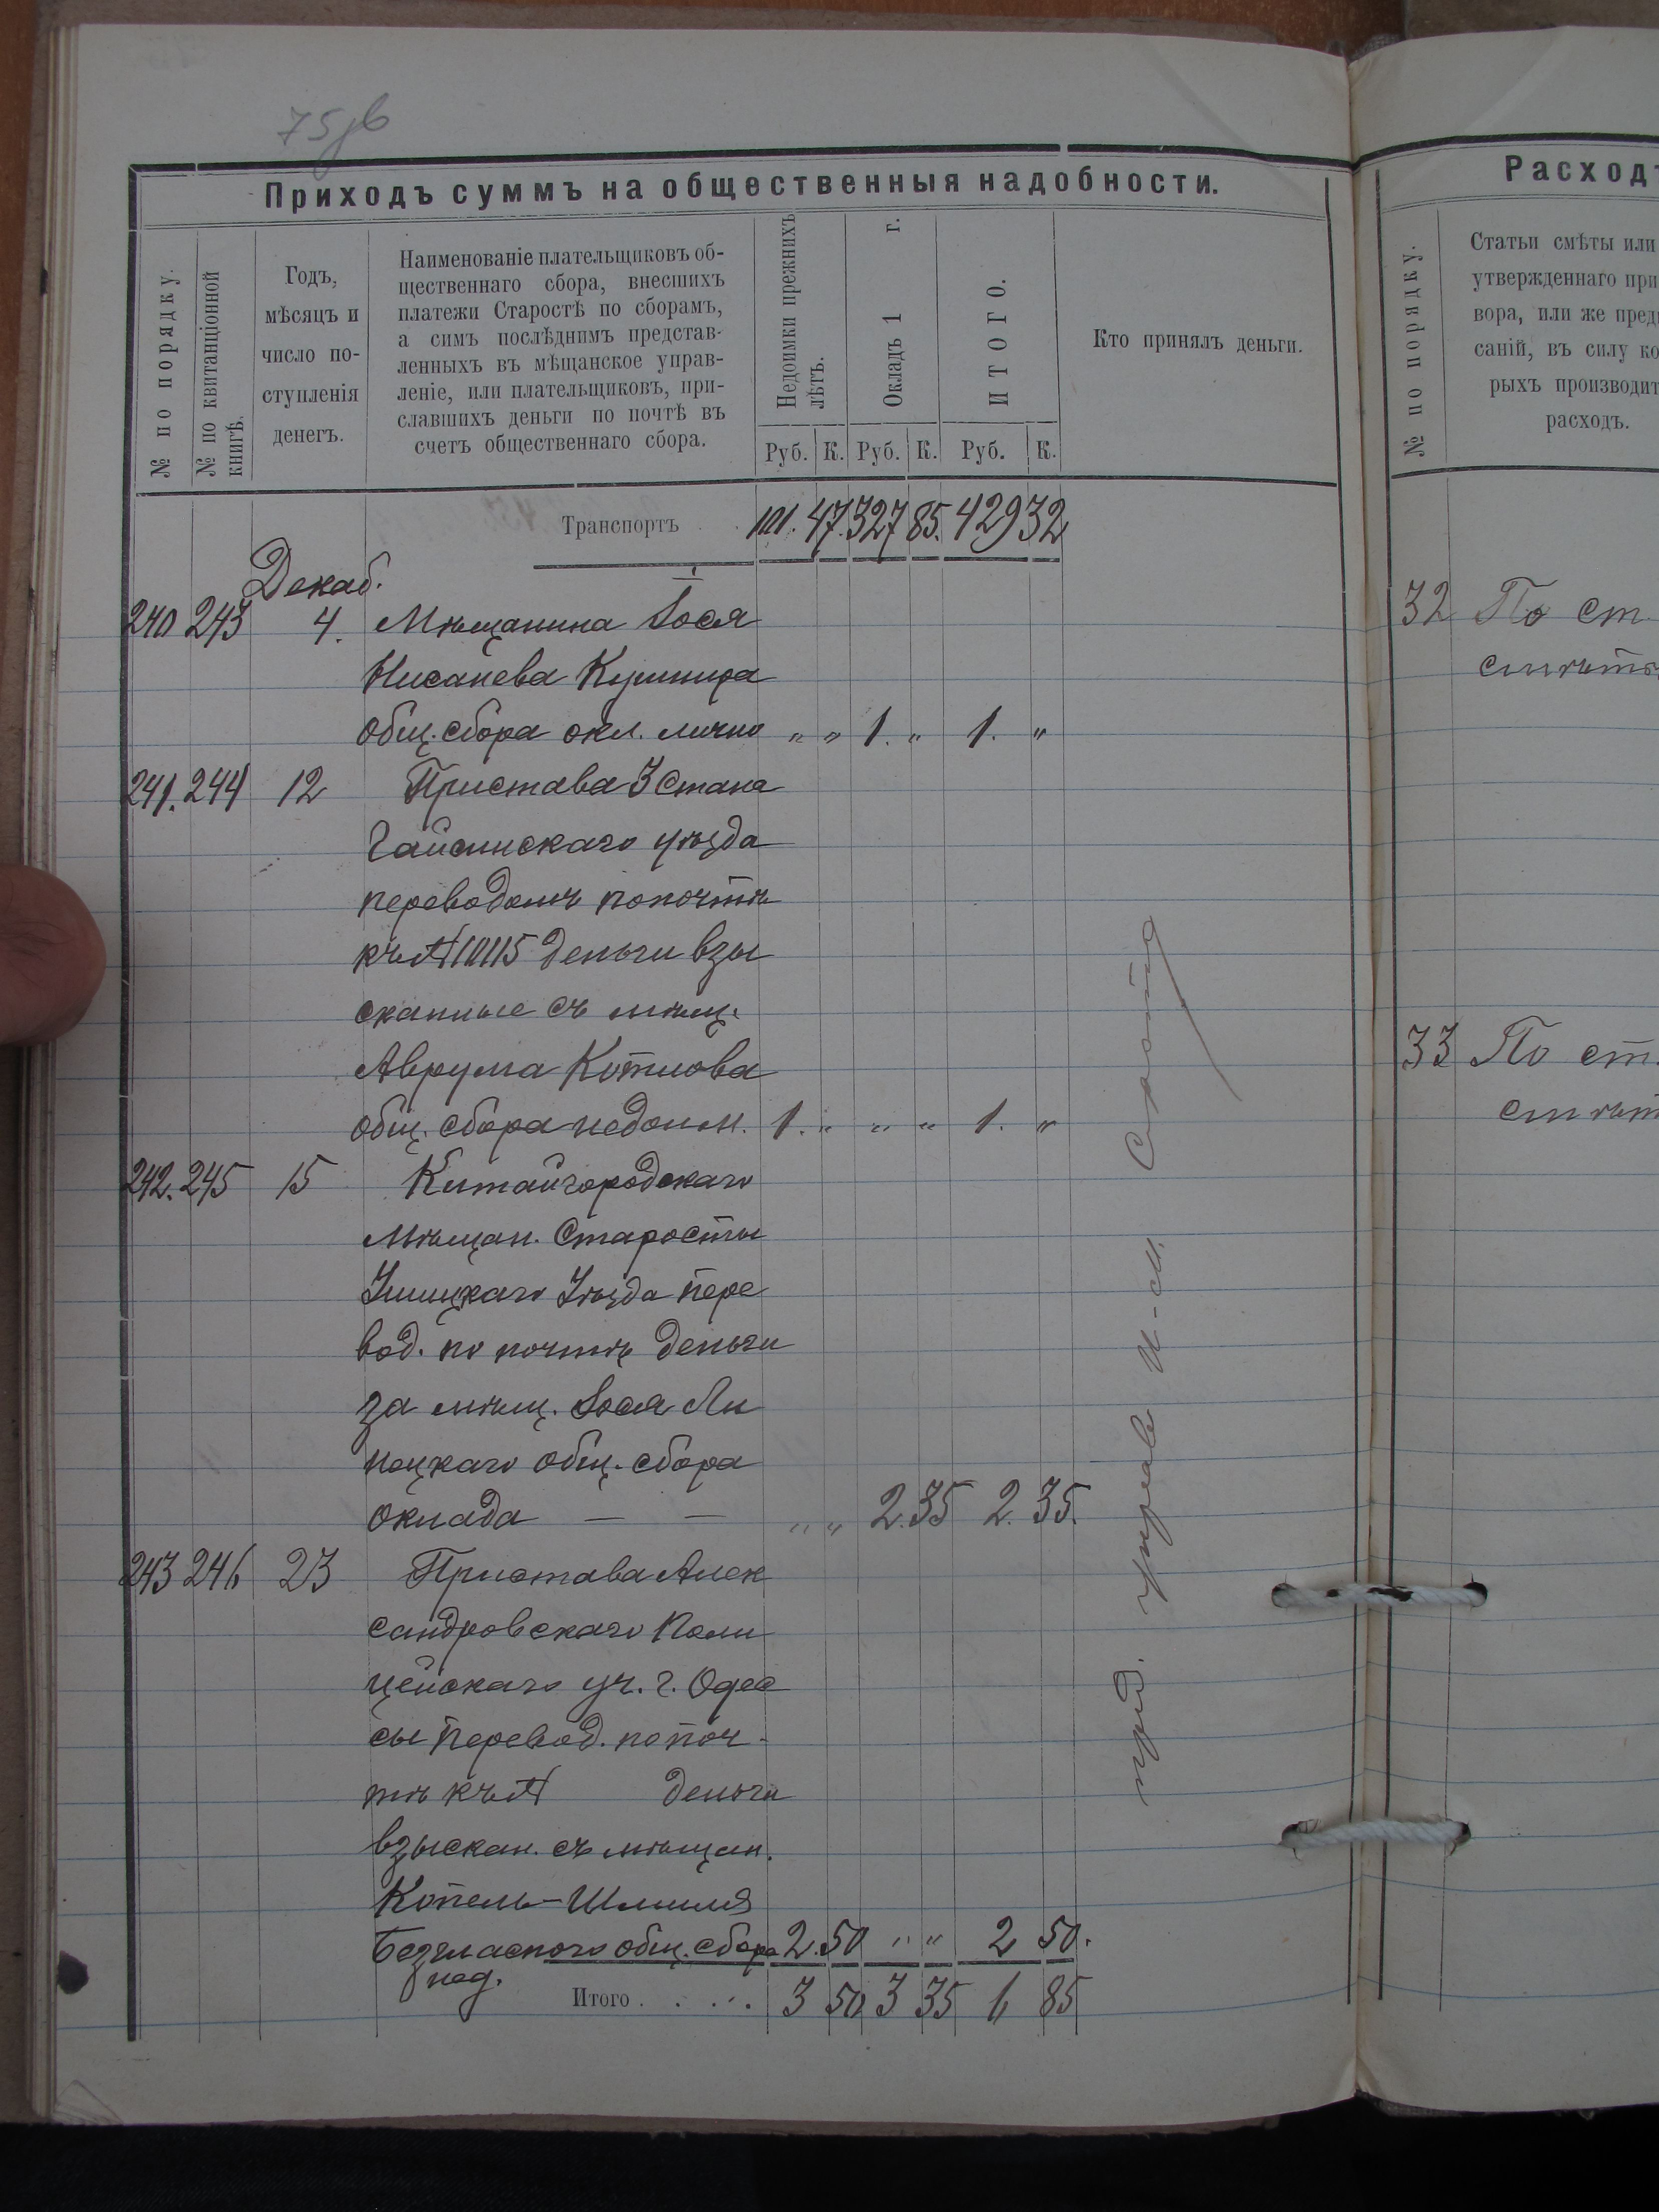 75об
Приходъ суммъ на общественныя надобности.
№ по порядку.
№ по квитанціонной книгѣ.
Годъ,
мѣсяцъ и
число по-
ступленія
денегъ.
Наименованіе плательщиковъ об-
щественнаго сбора, внесшихъ
платежи Старостѣ по сборамъ,
а симъ послѣднимъ представ-
ленныхъ въ мѣщанское управ-
леніе, или плательщиковъ, при-
славшихъ деньги по почтѣ въ
счетъ общественнаго сбора.
Недоимки прежнихъ лѣтъ.
Окладъ 1 г.
ИТОГО.
Кто принялъ деньги.
Руб. К. Руб. К. Руб. К.
Транспортъ 101. 47. 327 85. 429 32
Декаб.
240 243 4. Мѣщанина Іося
Нисанева Кушнира
общ. сбора окл. лично „ „ 1. „ 1. „
241. 244 12 Пристава 3 Стана
Гайсинскаго уѣзда
переводомъ по почтѣ
къ № 10115 деньги взы
сканные съ мѣщ.
Аврума Котлова
общ. сбора недоим. 1. „ „ „ 1. „
242. 245 15 Китайгородскаго
Мѣщан. Старосты
Ушицкаго Уѣзда пере
вод. по почтѣ деньги
за мѣщ. Іося Ли
пецкаго общ. сбора
оклада — — „ „ 2. 35 2. 35.
243 246 23 Пристава Алек
сандровскаго Поли
цейскаго уч. г. Одес
сы перевод. по поч-
тѣ къ № деньги
взыскан. съ мѣщан.
Копель-Шлиля
Безгласного общ. сбора 2. 50 „ „ 2 50.
нед.
Итого . . . . . 3 50 3 35 6 85
Расходъ
№ по порядку.
Статьи смѣты или
утвержденнаго при
вора, или же пред
саній, въ силу ко
рыхъ производит
расходъ.
32 По ст.
смѣты
33 По ст.
смѣт